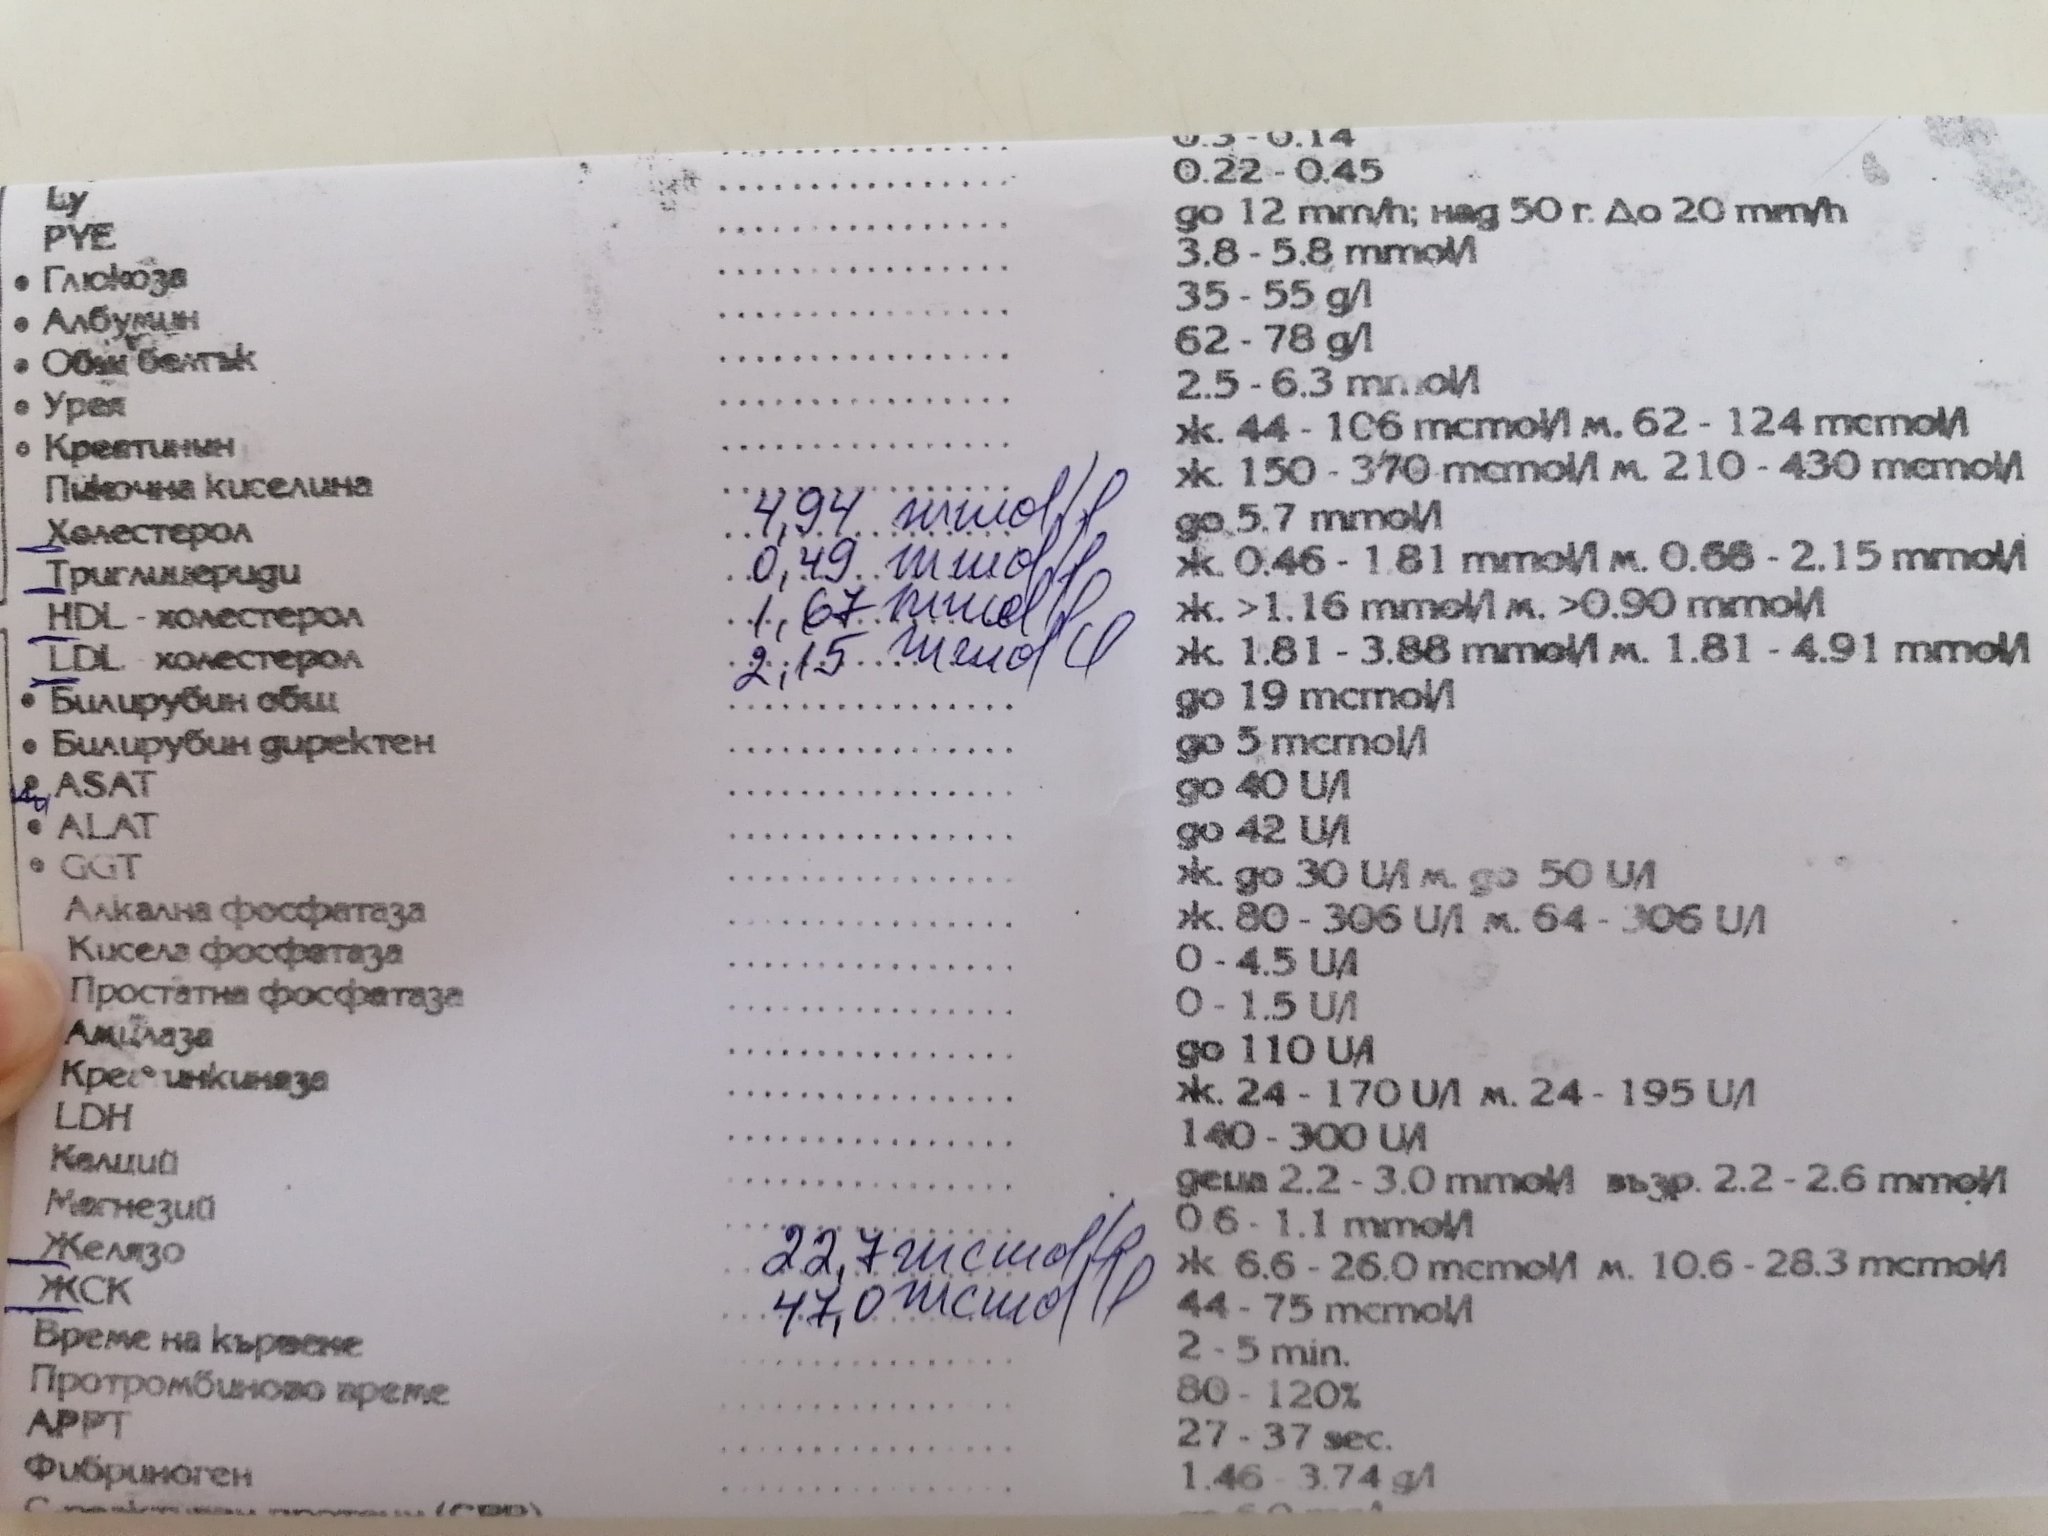 0.3 - 0.14
Ly ............... 0.22 - 0.45
РУЕ ............... до 12 mm/h; над 50 г. До 20 mm/h
• Глюкоза ............... 3.8 - 5.8 mmol/l
• Албумин ............... 35 - 55 g/l
• Общ белтък ............... 62 - 78 g/l
• Урея ............... 2.5 - 6.3 mmol/l
• Креатинин ............... ж. 44 - 106 mcmol/l м. 62 - 124 mcmol/l
Пикочна киселина ............... ж. 150 - 370 mcmol/l м. 210 - 430 mcmol/l
Холестерол 4,94 mmol/l до 5.7 mmol/l
Триглицериди 0,49 mmol/l ж. 0.46 - 1.81 mmol/l м. 0.68 - 2.15 mmol/l
HDL - холестерол 1,67 mmol/l ж. >1.16 mmol/l м. >0.90 mmol/l
LDL холестерол 2,15 mmol/l ж. 1.81 - 3.88 mmol/l м. 1.81 - 4.91 mmol/l
• Билирубин общ ............... до 19 mcmol/l
• Билирубин директен ............... до 5 mcmol/l
• ASAT ............... до 40 U/l
• ALAT ............... до 42 U/l
• GGT ............... ж. до 30 U/l м. до 50 U/l
Алкална фосфатаза ............... ж. 80 - 306 U/l м. 64 - 306 U/l
Кисела фосфатаза ............... 0 - 4.5 U/l
Простатна фосфатаза ............... 0 - 1.5 U/l
Амилаза ............... до 110 U/l
Креатинкиназа ............... ж. 24 - 170 U/l м. 24 - 195 U/l
LDH ............... 140 - 300 U/l
Калций ............... деца 2.2 - 3.0 mmol/l възр. 2.2 - 2.6 mmol/l
Магнезий ............... 0.6 - 1.1 mmol/l
Желязо 22,7 mcmol/l ж 6.6 - 26.0 mcmol/l м. 10.6 - 28.3 mcmol/l
ЖСК 47,0 mcmol/l 44 - 75 mcmol/l
Време на кървене ............... 2 - 5 min.
Протромбиново време ............... 80 - 120%
APPT ............... 27 - 37 sec.
Фибриноген ............... 1.46 - 3.74 g/l